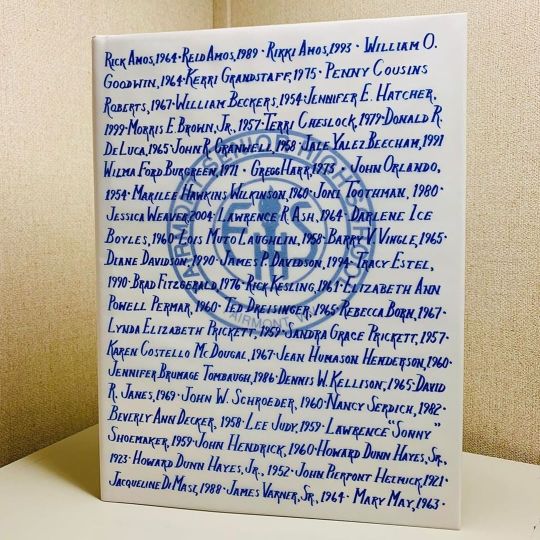 Rick Amos, 1964 · Reid Amos, 1989 · Rikki Amos, 1993 · William O.
Goodwin, 1964 · Kerri Grandstaff, 1975 · Penny Cousins
Roberts, 1967 · William Beckers, 1954 · Jennifer E. Hatcher,
1999 · Morris E. Brown, Jr., 1957 · Terri Cheslock, 1979 · Donald R.
De Luca, 1965 · John R. Cranwell, 1958 · Jale Yalez Beecham, 1991
Wilma Ford Burgreen, 1971 · Gregg Harr, 1973 · John Orlando,
1954 · Marilee Hawkins Wilkinson, 1960 · Joni Toothman, 1980 ·
Jessica Weaver, 2004 · Lawrence R Ash, 1964 · Darlene Ice
Boyles, 1960 · Lois Muto Laughlin, 1958 · Barry V. Vingle, 1965 ·
Diane Davidson, 1990 · James P. Davidson, 1994 · Tracy Estel,
1990 · Brad Fitzgerald, 1976 · Rick Kesling, 1961 · Elizabeth Ann
Powell Permar, 1960 · Ted Dreisinger, 1965 · Rebecca Born, 1967 ·
Lynda Elizabeth Prickett, 1959 · Sandra Grace Prickett, 1957 ·
Karen Costello McDougal, 1967 · Jean Humason Henderson, 1960 ·
Jennifer Brumage Tombaugh, 1986 · Dennis W. Kellison, 1965 · David
R. Janes, 1969 · John W. Schroeder, 1960 · Nancy Serdich, 1982 ·
Beverly Ann Decker, 1958 · Lee Judy, 1959 · Lawrence "Sonny"
Shoemaker, 1959 · John Hendrick, 1960 · Howard Dunn Hayes, Sr.,
1923 · Howard Dunn Hayes, Jr., 1952 · John Pierpont Helmick, 1921 ·
Jacqueline DiMasi, 1988 · James Varner, Sr., 1964 · Mary May, 1963 ·
SENIOR HIGH SCHOOL